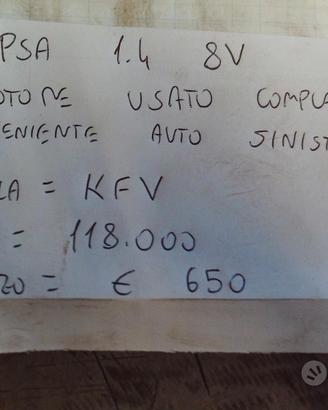 PSA 1.4 8V
OTORE USATO COMPL
ENIENTE AUTO SINIST
LA = KFV
= 118.000
ZO = € 650